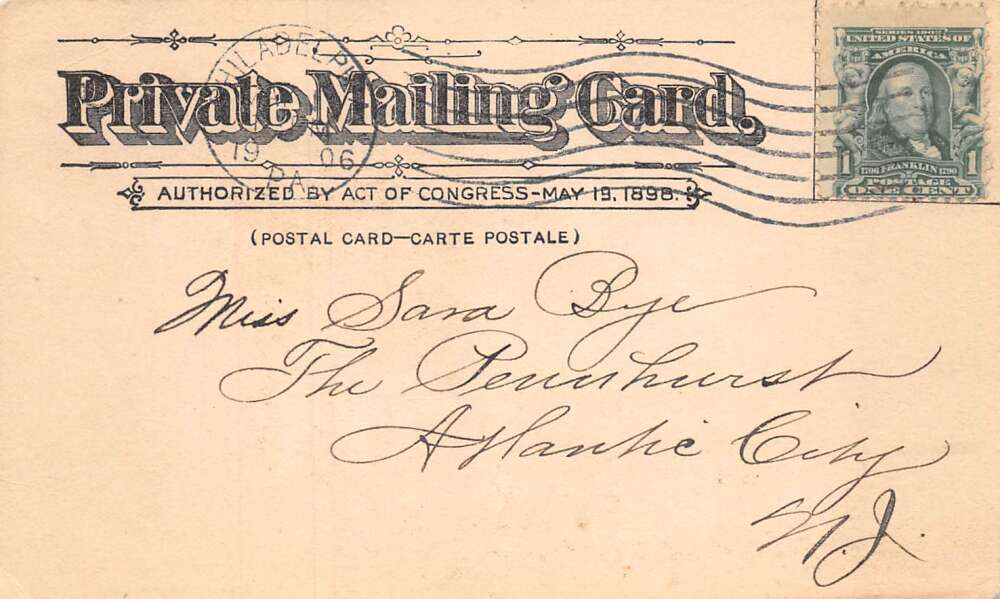 PHILADELPH
19 06
PA
SERIES 1902
UNITED STATES OF
AMERICA
1 1
1706 FRANKLIN 1790
POSTAGE
ONE CENT
Private Mailing Card.
AUTHORIZED BY ACT OF CONGRESS-MAY 19, 1898.
(POSTAL CARD—CARTE POSTALE)
Miss Sara Bye
The Pennhurst
Atlantic City
N.J.